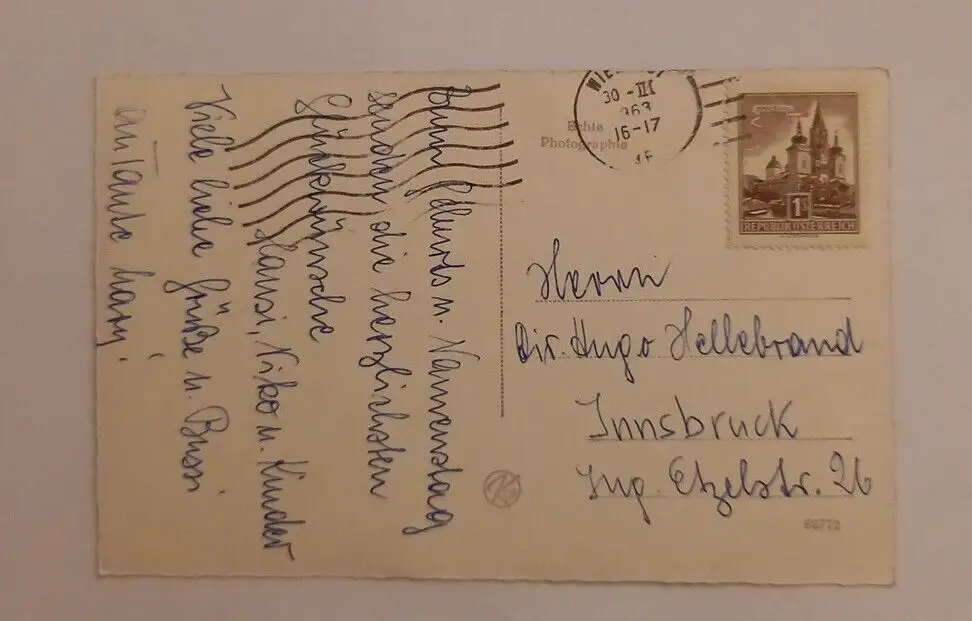 Zum Geburts u. Namenstag
senden die herzlichsten
Glückwünsche
Hansi, Niko u. Kinder
Viele liebe Grüße u. Bussi
an Tante
Echte
Photographie
30-III
963
16-17
1
REPUBLIK ÖSTERREICH
Herrn
Dir. Hugo Hellebrand
Innsbruck
Ing. Etzelstr. 26
60772